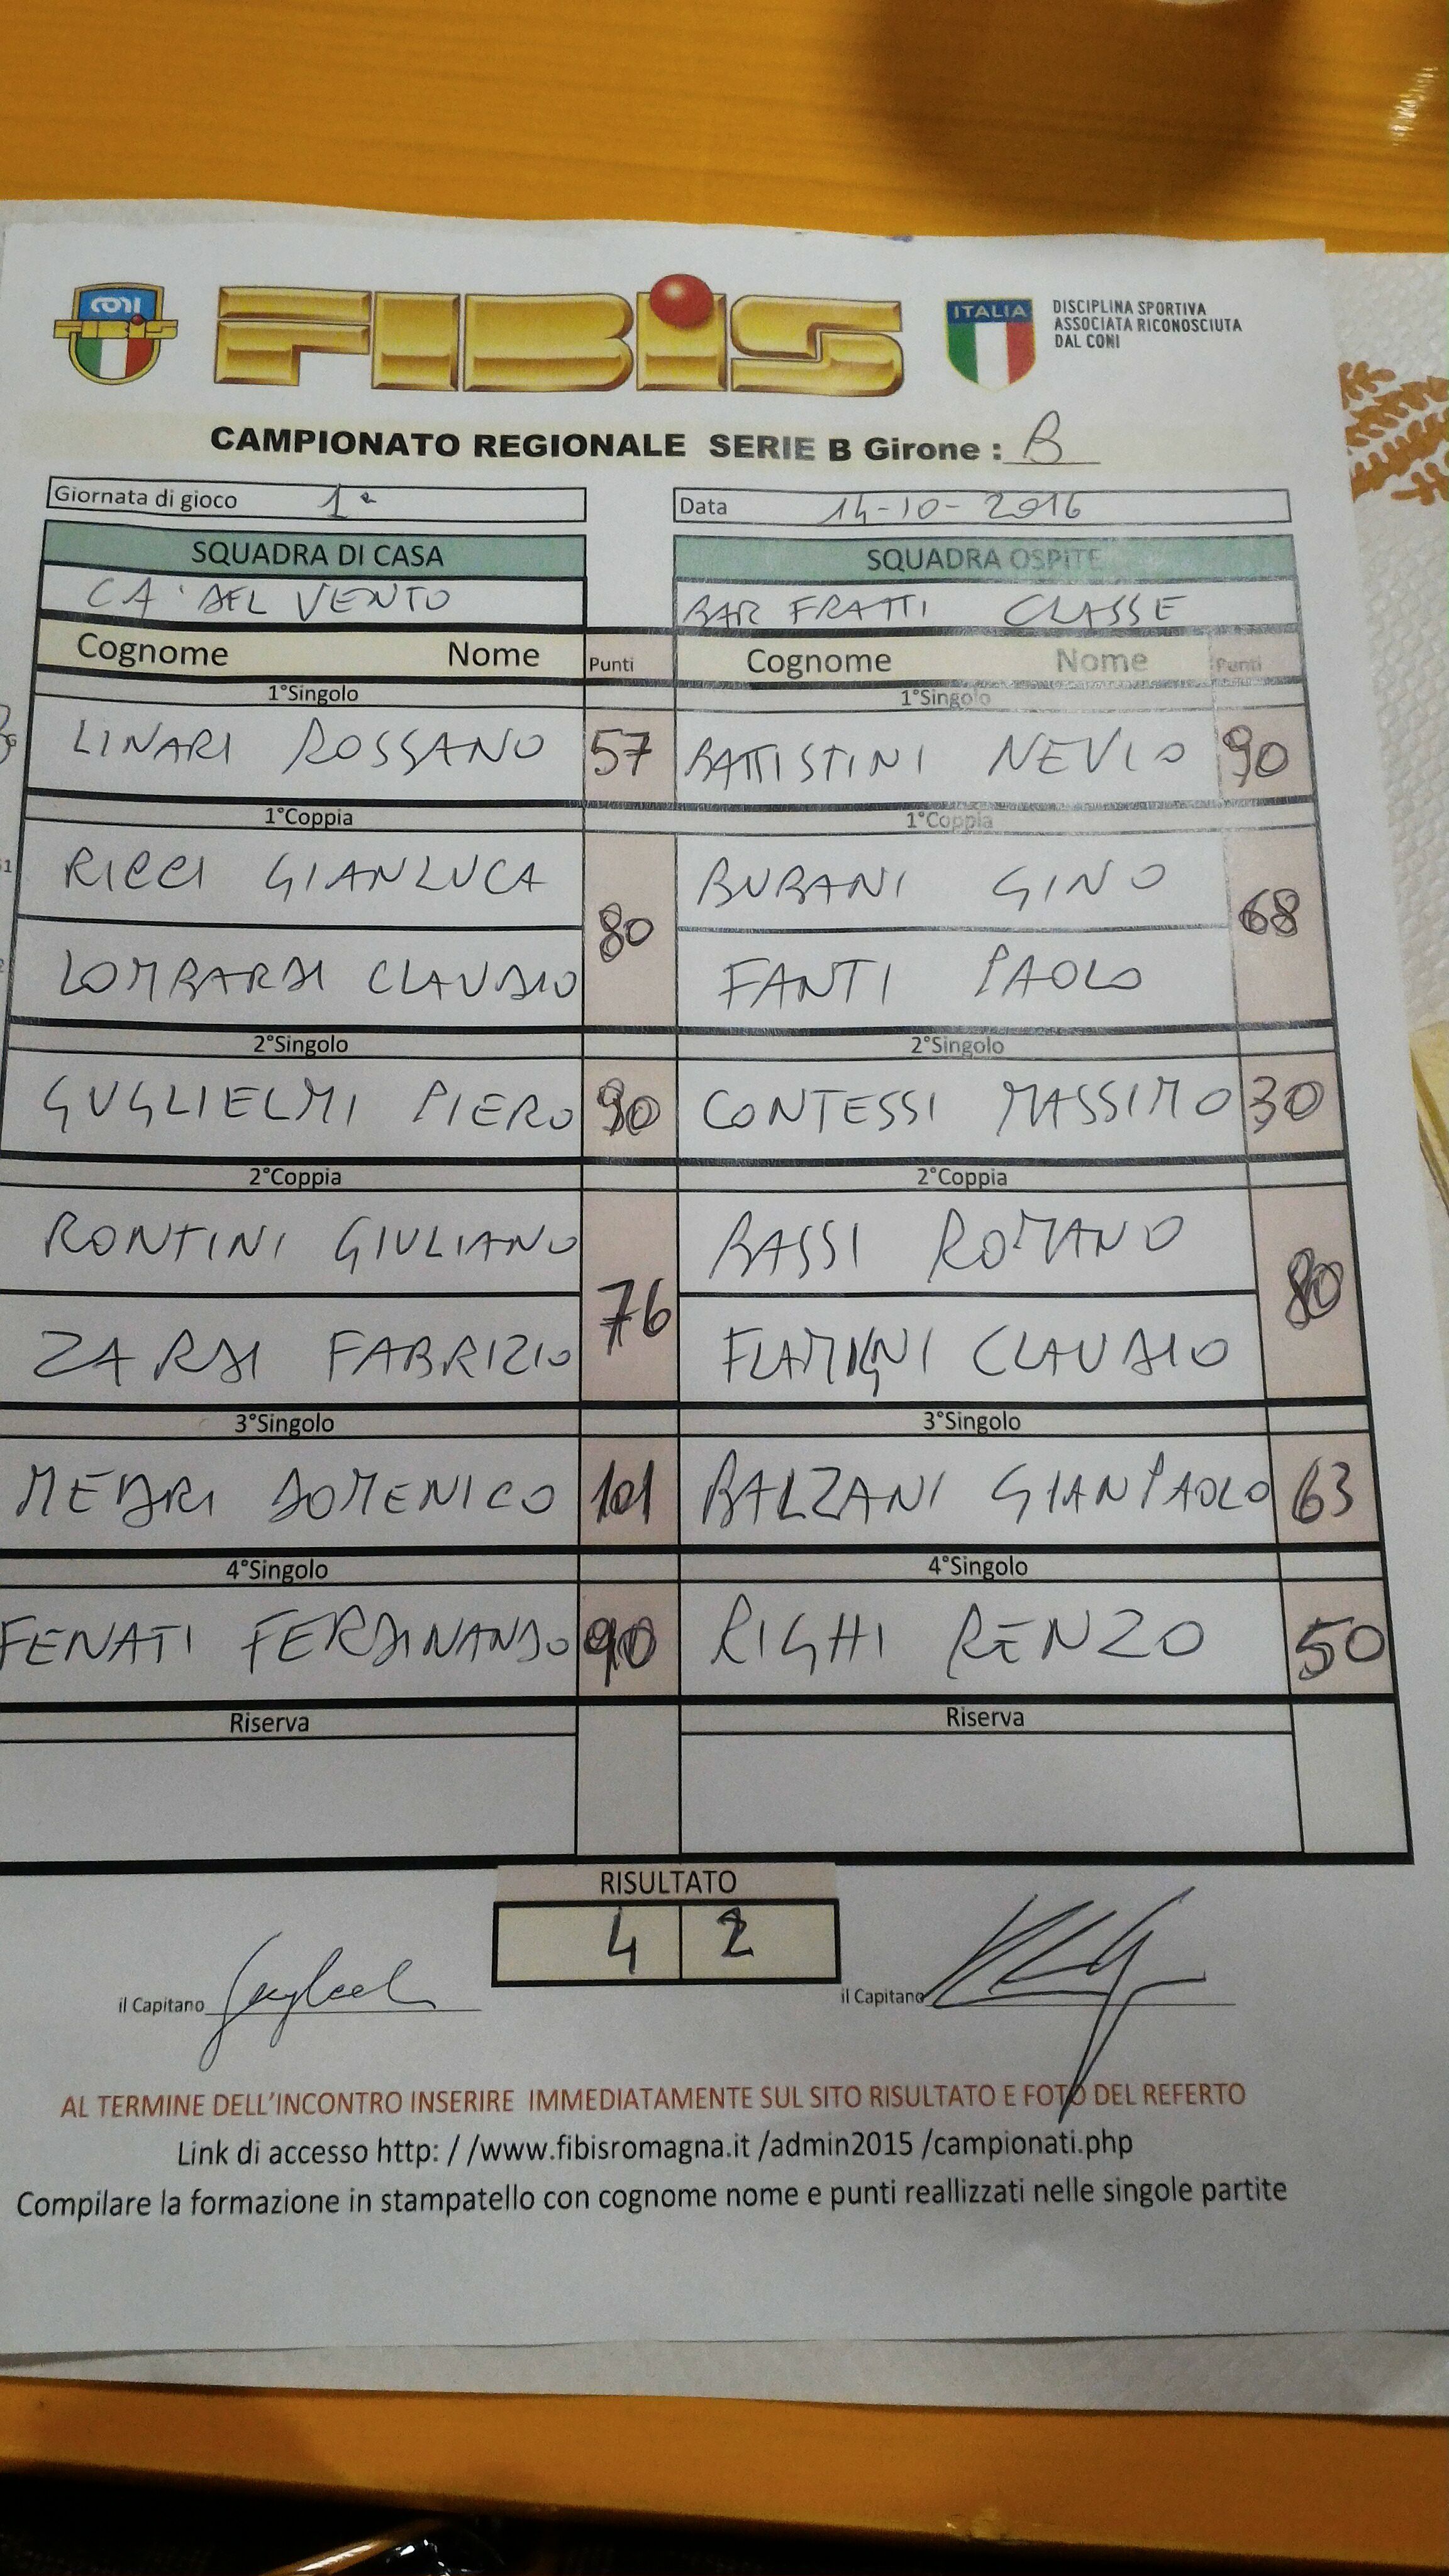 CONI
FIBIS
FIBIS
ITALIA
DISCIPLINA SPORTIVA
ASSOCIATA RICONOSCIUTA
DAL CONI
CAMPIONATO REGIONALE SERIE B Girone : B
Giornata di gioco 1ª
Data 14-10-2016
SQUADRA DI CASA SQUADRA OSPITE
CA' DEL VENTO BAR FRATTI CLASSE
Cognome Nome Punti Cognome Nome Punti
1°Singolo 1°Singolo
LINARI ROSSANO 57 BATTISTINI NEVIO 90
1°Coppia 1°Coppia
RICCI GIANLUCA BUBANI GINO
80 68
LOMBARDI CLAUDIO FANTI PAOLO
2°Singolo 2°Singolo
GUGLIELMI PIERO 90 CONTESSI MASSIMO 30
2°Coppia 2°Coppia
RONTINI GIULIANO BASSI ROMANO
76 80
ZARDI FABRIZIO FLAMIGNI CLAUDIO
3°Singolo 3°Singolo
MEDRI DOMENICO 101 BALZANI GIANPAOLO 63
4°Singolo 4°Singolo
FENATI FERDINANDO 90 RIGHI RENZO 50
Riserva Riserva
RISULTATO
4 2
il Capitano il Capitano
AL TERMINE DELL'INCONTRO INSERIRE IMMEDIATAMENTE SUL SITO RISULTATO E FOTO DEL REFERTO
Link di accesso http: / /www.fibisromagna.it /admin2015 /campionati.php
Compilare la formazione in stampatello con cognome nome e punti reallizzati nelle singole partite